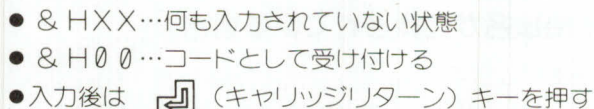 ● & HXX…何も入力されていない状態
● & H00…コードとして受け付ける
●入力後は （キャリッジリターン）キーを押す